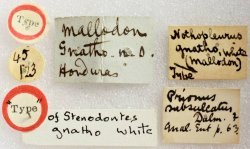 Type
45
Mallodon
Gnatho. n.d.
Honduras
Nothopleurus
gnatho, White
(Mallodon)
Type
"Type"
of Stenodontes
gnatho White
Prionus
subsulcatus
Dalm. ?
Anal. Ent p. 63